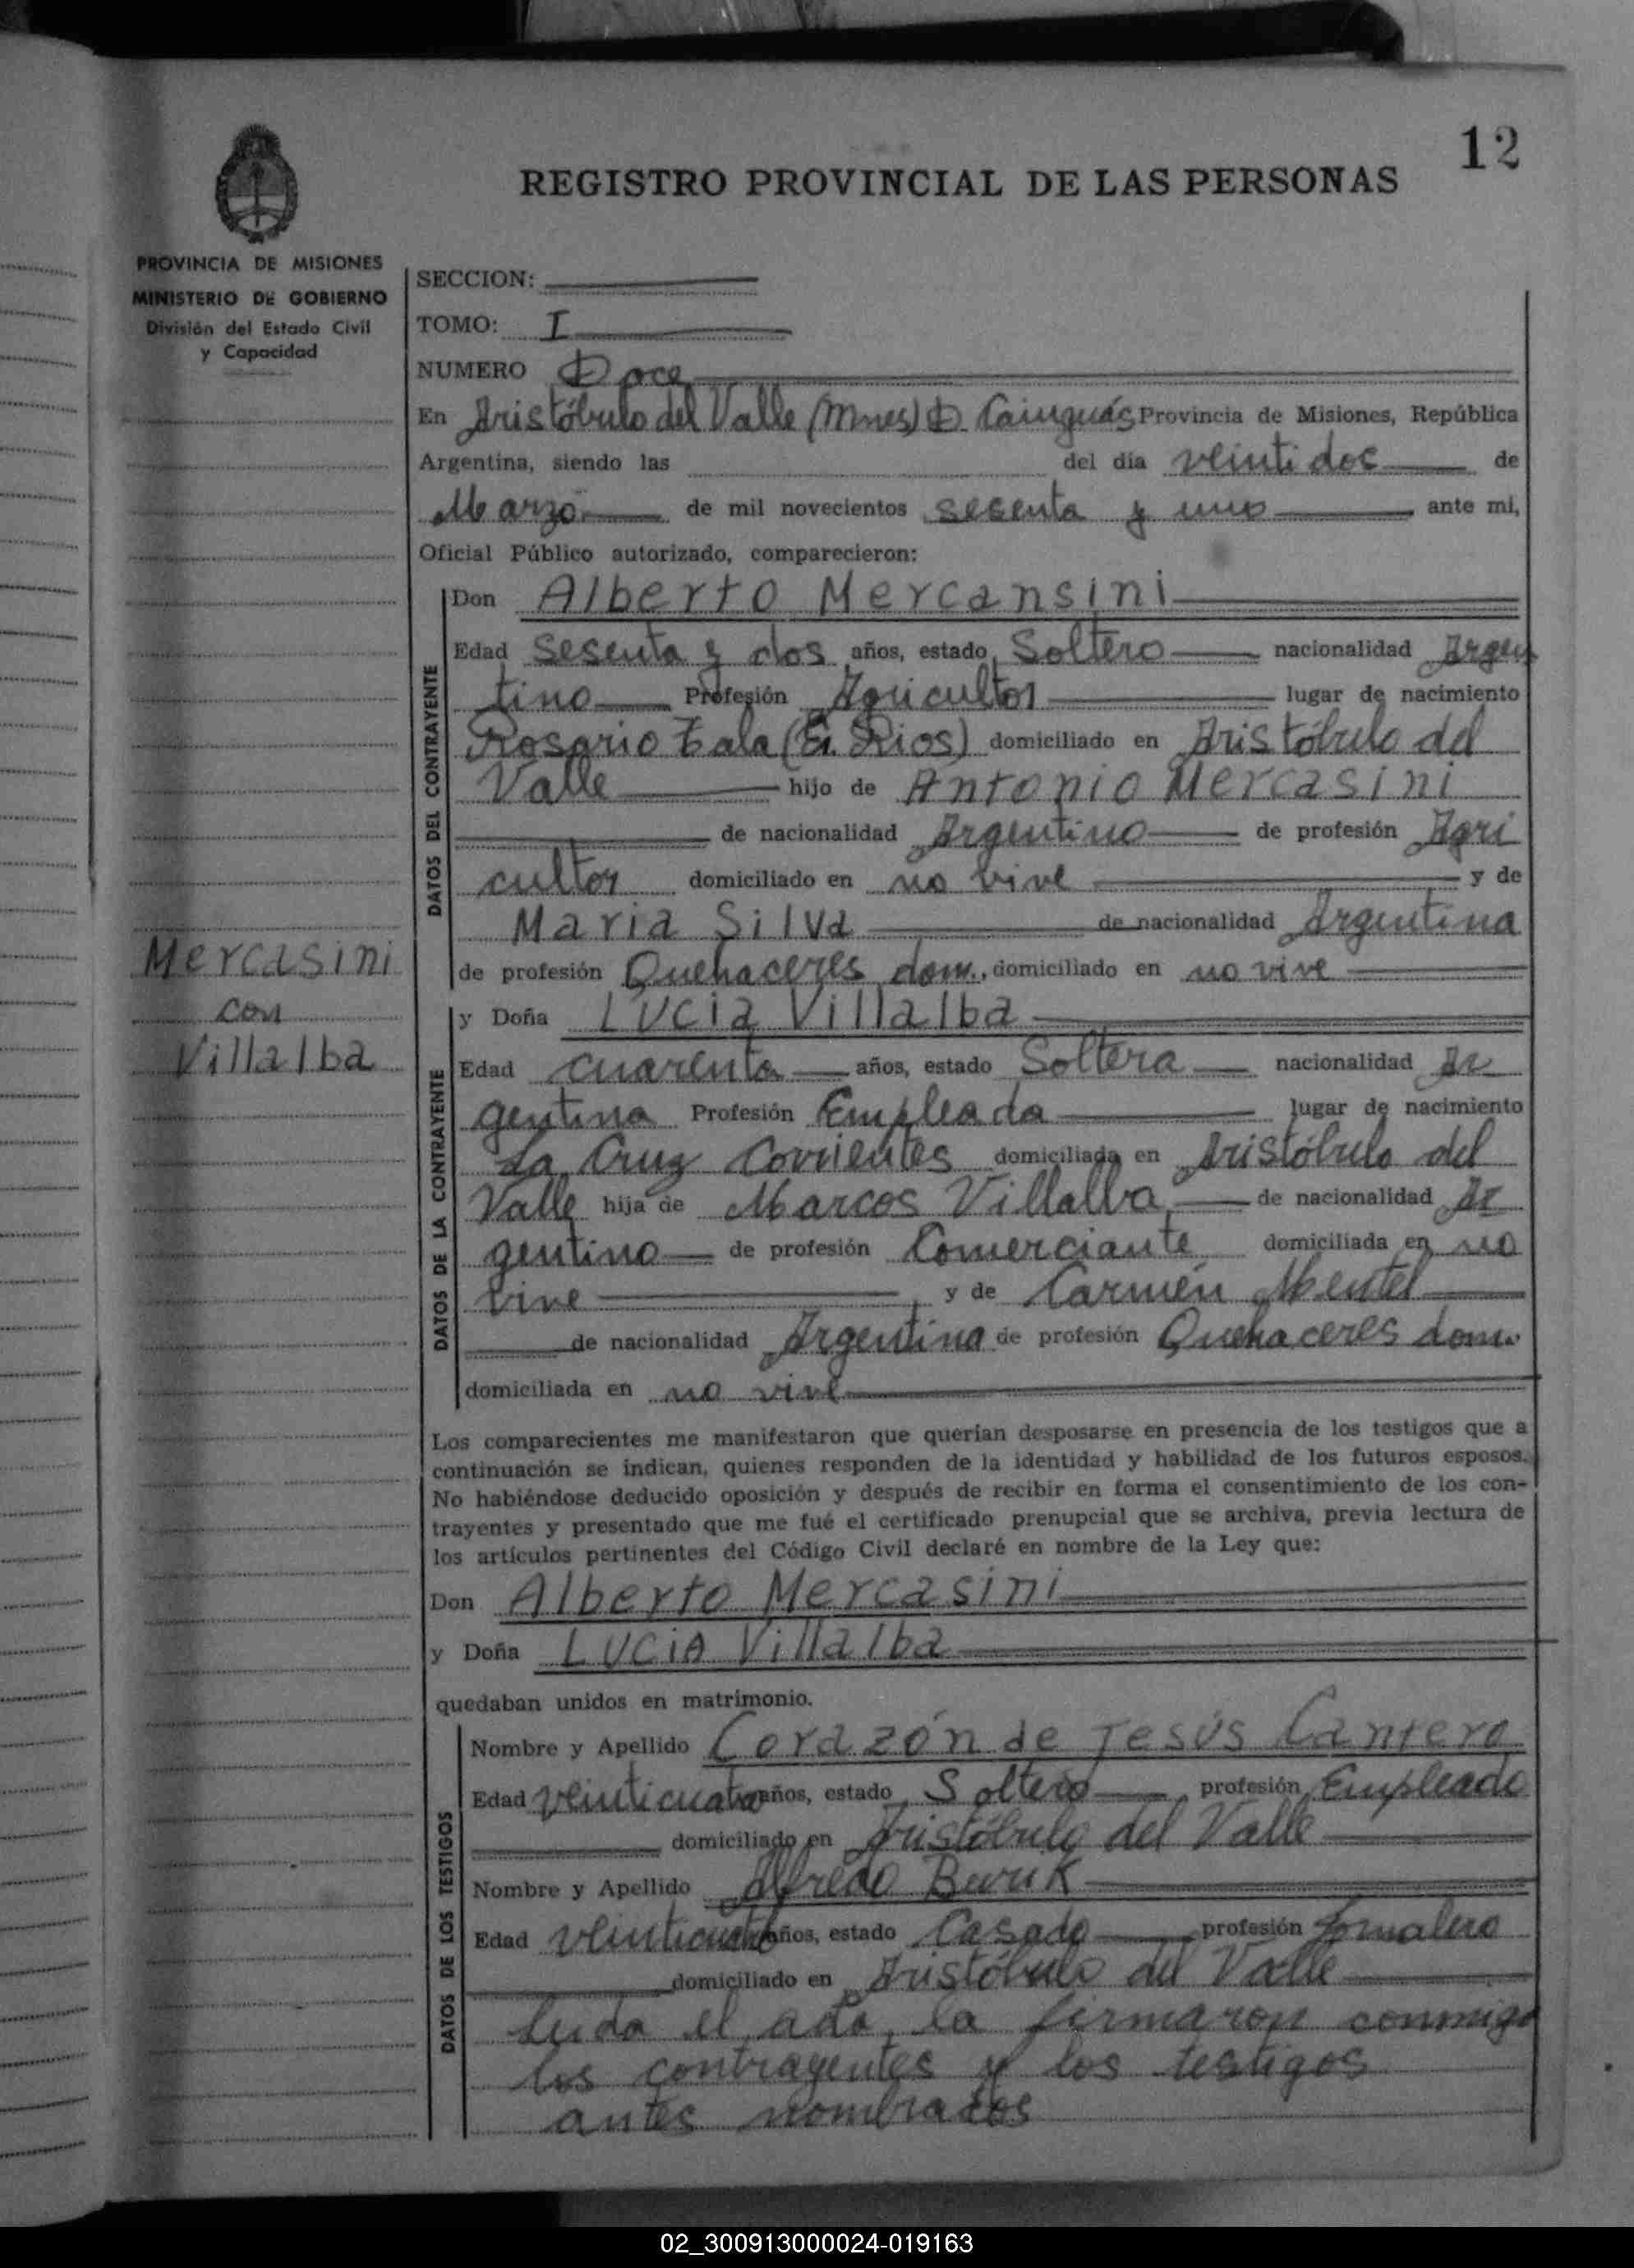 12
REGISTRO PROVINCIAL DE LAS PERSONAS
PROVINCIA DE MISIONES
MINISTERIO DE GOBIERNO
División del Estado Civil
y Capacidad
Mercasini
con
Villalba
SECCION:
TOMO: I
NUMERO Doce
En Aristóbulo del Valle (Mnes) D. Cainguás Provincia de Misiones, República
Argentina, siendo las del día veintidos de
Marzo de mil novecientos sesenta y uno ante mi,
Oficial Público autorizado, comparecieron:
DATOS DEL CONTRAYENTE
Don Alberto Mercansini
Edad sesenta y dos años, estado Soltero nacionalidad Argen
tino Profesión Agricultor lugar de nacimiento
Rosario Tala (E. Rios) domiciliado en Aristóbulo del
Valle hijo de Antonio Mercasini
de nacionalidad Argentino de profesión Agri
cultor domiciliado en no vive y de
Maria Silva de nacionalidad Argentina
de profesión Quehaceres dom., domiciliado en no vive
DATOS DE LA CONTRAYENTE
y Doña LUCia Villalba
Edad cuarenta años, estado Soltera nacionalidad Ar
gentina Profesión Empleada lugar de nacimiento
La Cruz Corrientes domiciliada en Aristóbulo del
Valle hija de Marcos Villalba de nacionalidad Ar
gentino de profesión Comerciante domiciliada en no
vive y de Carmén Mentel
de nacionalidad Argentina de profesión Quehaceres dom.
domiciliada en no vive
Los comparecientes me manifestaron que querían desposarse en presencia de los testigos que a
continuación se indican, quienes responden de la identidad y habilidad de los futuros esposos.
No habiéndose deducido oposición y después de recibir en forma el consentimiento de los con-
trayentes y presentado que me fué el certificado prenupcial que se archiva, previa lectura de
los artículos pertinentes del Código Civil declaré en nombre de la Ley que:
Don Alberto Mercasini
y Doña LUCiA Villalba
quedaban unidos en matrimonio.
DATOS DE LOS TESTIGOS
Nombre y Apellido Corazón de Jesús Cantero
Edad veinticuatro años, estado Soltero profesión Empleado
domiciliado en Aristóbulo del Valle
Nombre y Apellido Alfredo
Edad veinticuatro años, estado Casado profesión Jornalero
domiciliado en Aristóbulo del Valle
Leida el acta, la firmaron conmigo
los contrayentes y los testigos
antes nombrados
02_300913000024-019163